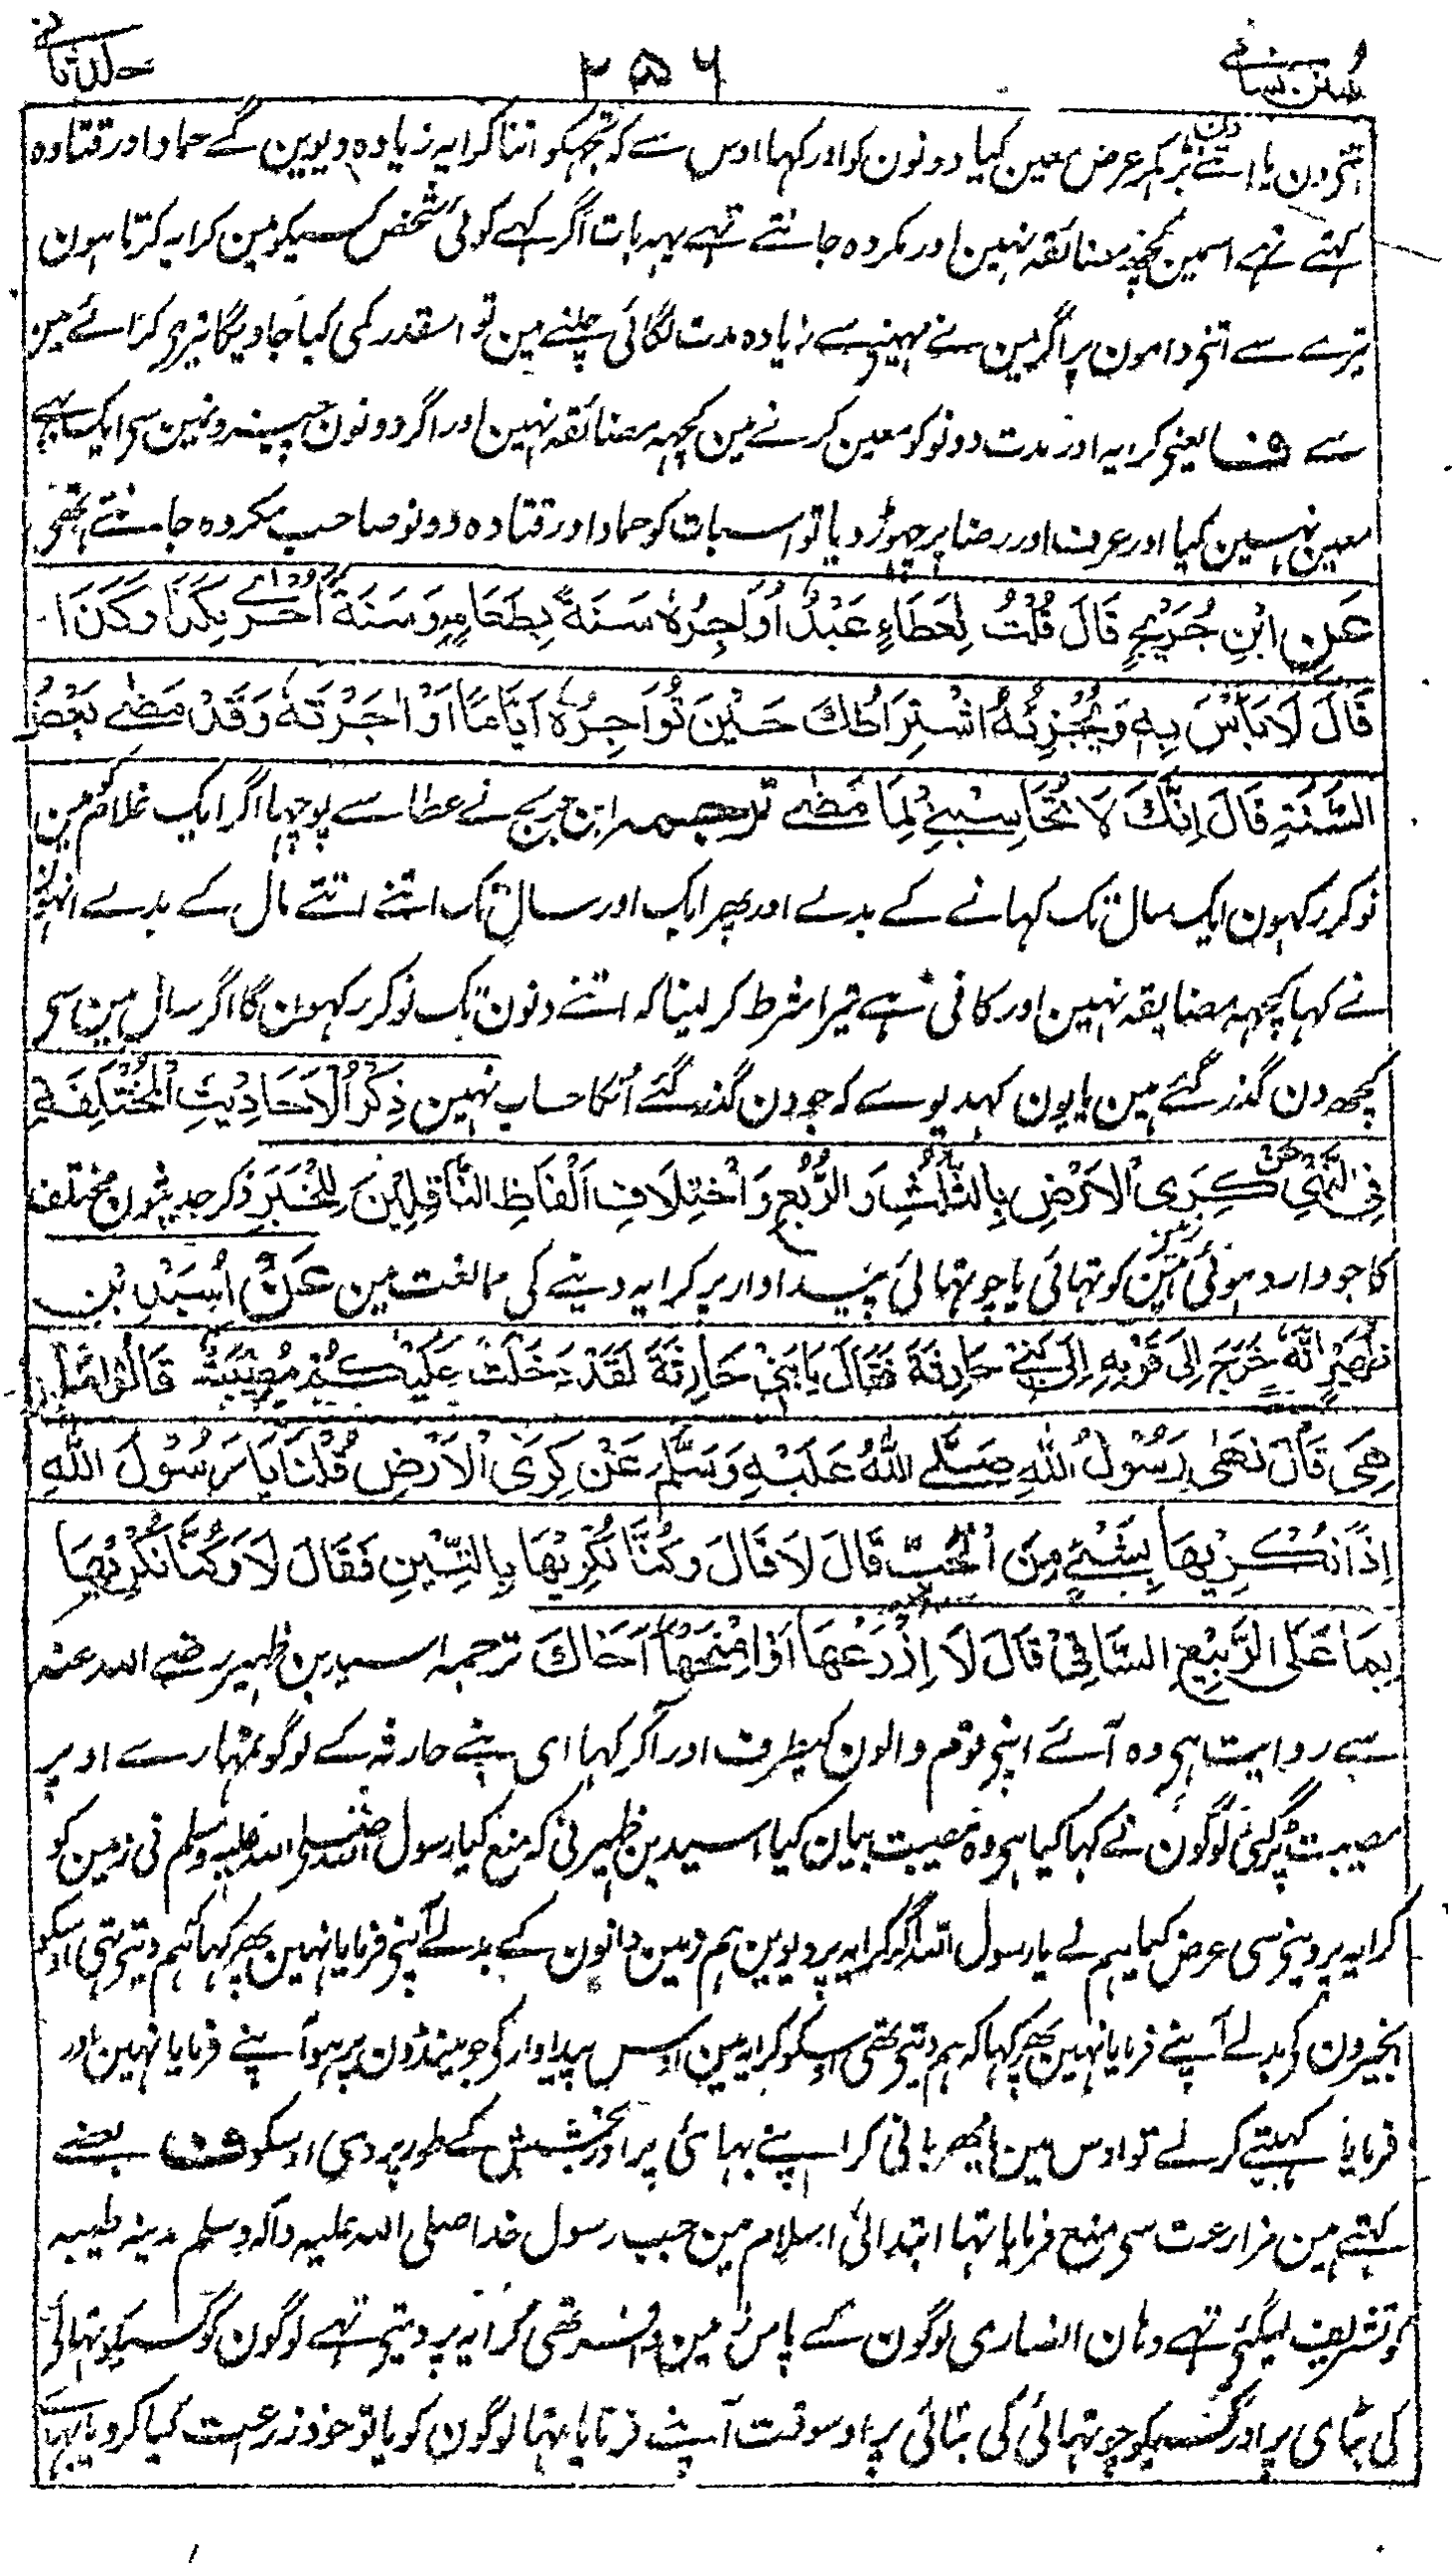 سنن نسائی ۲۵۶ جلد ثانی
اتنی دن یا اتنے دن بڑھکر عرض معین کیا دونون کو اور کہا اوس سے کہ تجہکو اتنا کرایہ زیادہ دیوین گے حماد اور قتادہ
کہتے تہے اسمین کچھ مضائقہ نہین اور مکروہ جانتے تہے یہہ بات اگر کہے کوئی شخص کسیکو مین کرایہ کرتا ہون
تیرے سے اتنی دامون پر اگر مین نے مہینہ سے زیادہ مدت لگائی چلنے مین تو اسقدر کمی کیا جاویگا تیری کرائے مین
سے ف یعنی کرایہ اور مدت دونو کو معین کرنے مین کچہہ مضائقہ نہین اور اگر دونون چیزونمین سی ایک بہی
معین نہین کیا اور عرف اور رضا پر چھوڑ دیا تو اسبات کو حماد اور قتادہ دونو صاحب مکروہ جانتے تھی
عَنِ ابْنِ جُرَيْجٍ قَالَ قُلْتُ لِعَطَاءٍ عَبْدٌ أُوَاجِرُهُ سَنَةً بِطَعَامِهِ وَسَنَةً أُخْرٰى بِكَذَا وَكَذَا
قَالَ لَا بَأْسَ بِهِ وَيُجْزِئُهُ اشْتِرَاطُكَ حَيْنَ تُوَاجِرُهُ أَيَّامًا أَوْ اٰجَرْتَهُ وَقَدْ مَضٰى بَعْضُ
السَّنَةِ قَالَ اِنَّكَ لَا تُحَاسِبُنِيْ لِمَا مَضٰى ترجمہ ابن جریج نے عطا سے پوچہا اگر ایک غلام کو مین
نوکر رکہون ایک سال تک کہانے کے بدلے اور پھر ایک اور سال تک اتنے اتنے مال کے بدلے انہون
نے کہا کچہہ مضایقہ نہین اور کافی ہے تیرا شرط کر لینا کہ اتنے دنون تک نوکر رکہون گا اگر سال مین سی
کچھ دن گذر گئے ہین یا یون کہدیوے کہ جو دن گذر گئے اُنکا حساب نہین ذِكْرُ الْاَحَادِيْثِ الْمُخْتَلِفَةِ
فِي النَّهْيِ عَنْ كِرَى الْاَرْضِ بِالثُّلُثِ وَالرُّبُعِ وَاخْتِلَافِ اَلْفَاظِ النَّاقِلِيْنَ لِلْخَبَرِ ذکر حدیثون مختلف
کا جو وارد ہوئی ہین زمین کو تہائی یا چوتہائی پیداوار پر کرایہ دینے کی ممانعت مین عَنْ اُسَيْدِ بْنِ
ظُهَيْرٍ اَنَّهُ خَرَجَ اِلَى قَوْمِهِ اِلَى بَنِيْ حَارِثَةَ فَقَالَ يَا بَنِيْ حَارِثَةَ لَقَدْ دَخَلَتْ عَلَيْكُمْ مُصِيْبَةٌ قَالُوْا مَا
هِيَ قَالَ نَهٰى رَسُوْلُ اللهِ صَلَّى اللهُ عَلَيْهِ وَسَلَّمَ عَنْ كِرَى الْاَرْضِ قُلْنَا يَا رَسُوْلَ اللهِ
اِذًا نُكْرِيْهَا بِشَيْءٍ مِنَ الْحَبِّ قَالَ لَا قَالَ وَكُنَّا نُكْرِيْهَا بِالتِّيْنِ فَقَالَ لَا وَكُنَّا نُكْرِيْهَا
بِمَا عَلَى الرَّبِيْعِ السَّاقِيْ قَالَ لَا اِزْرَعْهَا اَوْ امْنَحْهَا اَخَاكَ ترجمہ اسید بن ظہیر رضی اللہ عنہ
سے روایت ہی وہ آئے اپنی قوم والون کیطرف اور آکر کہا ای بنے حارثہ کے لوگو تمہارے اوپر
مصیبت پڑگئی لوگون نے کہا کیا ہی وہ مصیبت بیان کیا اسید بن ظہیر نی کہ منع کیا رسول اللہ صلی اللہ علیہ وسلم نی زمین کو
کرایہ پر دینی سی عرض کیا ہم نے یا رسول اللہ اگر کرایہ پر دیوین ہم زمین دانون کے بدلے آپنی فرمایا نہین پھر کہا کہ ہم دیتی تہی اوسکو
انجیرون کی بدلے آپنے فرمایا نہین پھر کہا کہ ہم دیتی تھی اوسکو کرایہ مین اوس پیداوار کی جو مینڈون پر ہو آپنے فرمایا نہین اور
فرمایا کہیتی کرلے تو اوس مین یا مہربانی کر اپنے بہائی پر اور بخشش کے طور پر دی اوسکو ف بعضے
کہتے ہین مزارعت سی منع فرمایا تہا ابتدائی اسلام مین جب رسول خدا صلی اللہ علیہ وآلہ وسلم مدینہ طیبہ
کو تشریف لیگئی تہے وہان انصاری لوگون کے پاس زمین وافر تھی کرایہ پر دیتی تہے لوگون کو کسیکو تہائی
کی بٹای پر اور کسیکو چوتہائی کی بٹائی پر اوسوقت آپنے فرمایا تہا لوگون کو یا تو خود زرعت کیا کرو یا بہائی